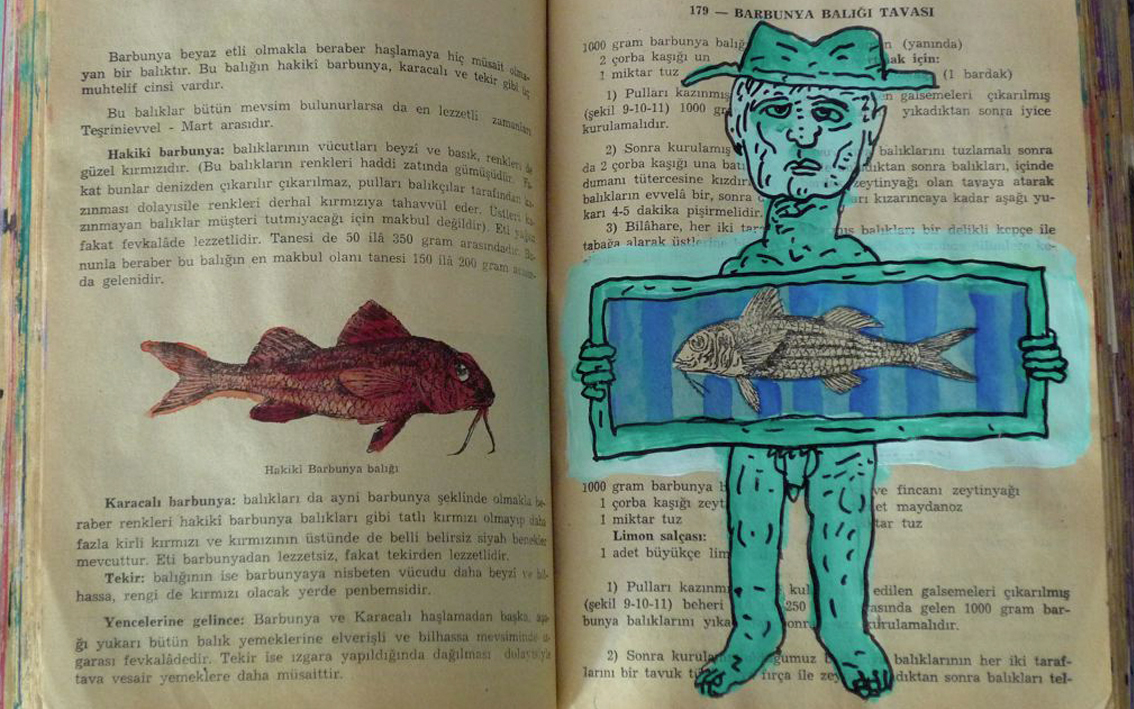 Barbunya beyaz etli olmakla beraber haşlamaya hiç müsait olma-
yan bir balıktır. Bu balığın hakikî barbunya, karacalı ve tekir gibi üç
muhtelif cinsi vardır.
Bu balıklar bütün mevsim bulunurlarsa da en lezzetli zamanları
Teşrinievvel - Mart arasıdır.
Hakikî barbunya: balıklarının vücutları beyzî ve basık, renkleri de
güzel kırmızıdır. (Bu balıkların renkleri haddi zatında gümüşüdür. Fa-
kat bunlar denizden çıkarılır çıkarılmaz, pulları balıkçılar tarafından ka-
zınması dolayısile renkleri derhal kırmızıya tahavvül eder. Üstleri ka-
zınmayan balıklar müşteri tutmıyacağı için makbul değildir). Eti yağlı
fakat fevkalâde lezzetlidir. Tanesi de 50 ilâ 350 gram arasındadır. Bu-
nunla beraber bu balığın en makbul olanı tanesi 150 ilâ 200 gram arasın-
da gelenidir.
Hakikî Barbunya balığı
Karacalı barbunya: balıkları da ayni barbunya şeklinde olmakla be-
raber renkleri hakikî barbunya balıkları gibi tatlı kırmızı olmayıp daha
fazla kirli kırmızı ve kırmızının üstünde de belli belirsiz siyah benekler
mevcuttur. Eti barbunyadan lezzetsiz, fakat tekirden lezzetlidir.
Tekir: balığının ise barbunyaya nisbeten vücudu daha beyzî ve bil-
hassa, rengi de kırmızı olacak yerde penbemsidir.
Yencelerine gelince: Barbunya ve Karacalı haşlamadan başka, aşa-
ğı yukarı bütün balık yemeklerine elverişli ve bilhassa mevsiminde ız-
garası fevkalâdedir. Tekir ise ızgara yapıldığında dağılması dolayısiyle
tava vesair yemeklere daha müsaittir.
179 — BARBUNYA BALIĞI TAVASI
1000 gram barbunya (yanında)
2 çorba kaşığı un için:
1 miktar tuz (1 bardak)
1) Pulları kazınmış galsemeleri çıkarılmış
(şekil 9-10-11) 1000 yıkadıktan sonra iyice
kurulamalıdır.
2) Sonra kurulamış balıklarını tuzlamalı sonra
da 2 çorba kaşığı una sonra balıkları, içinde
dumanı tütercesine zeytinyağı olan tavaya atarak
balıkların evvelâ bir, sonra kızarıncaya kadar aşağı yu-
karı 4-5 dakika pişirmelidir.
3) Bilâhare, her iki balıkları bir delikli kepçe ile
tabağa alarak üstlerine
1000 gram barbunya fincanı zeytinyağı
1 çorba kaşığı maydanoz
1 miktar tuz tuz
Limon salçası:
1 adet büyükçe
1) Pulları edilen galsemeleri çıkarılmış
(şekil 9-10-11) beheri 250 gelen 1000 gram bar-
bunya balıklarını kurulamalıdır.
2) Sonra balıklarının her iki taraf-
larını bir tavuk fırça ile sonra balıkları tel-